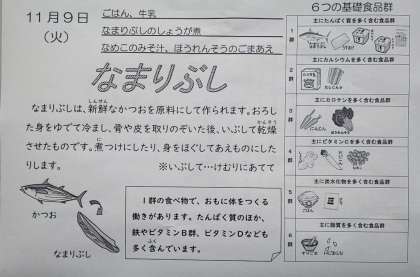 11月9日
(火)
ごはん、牛乳
なまりぶしのしょうが煮
なめこのみそ汁、ほうれんそうのごまあえ
なまりぶし
なまりぶしは、新鮮なかつおを原料にして作られます。おろし
しんせん
た身をゆでて冷まし、骨や皮を取りのぞいた後、いぶして乾燥
かんそう
させたものです。煮つけにしたり、身をほぐしてあえものにした
りします。
※いぶして…けむりにあてて
かつお
なまりぶし
Ⅰ群の食べ物で、おもに体をつくる
働きがあります。たんぱく質のほか、
鉄やビタミンB群、ビタミンDなども
多く含んでいます。
ふく
6つの基礎食品群
主にたんぱく質を多く含む食品群
1
群
主にカルシウムを多く含む食品群
2
群
主にカロテンを多く含む食品群
3
群
にんじん
主にビタミンCを多く含む食品群
4
群
主に炭水化物を多く含む食品群
5
群
ごはん
主に脂質を多く含む食品群
6
群